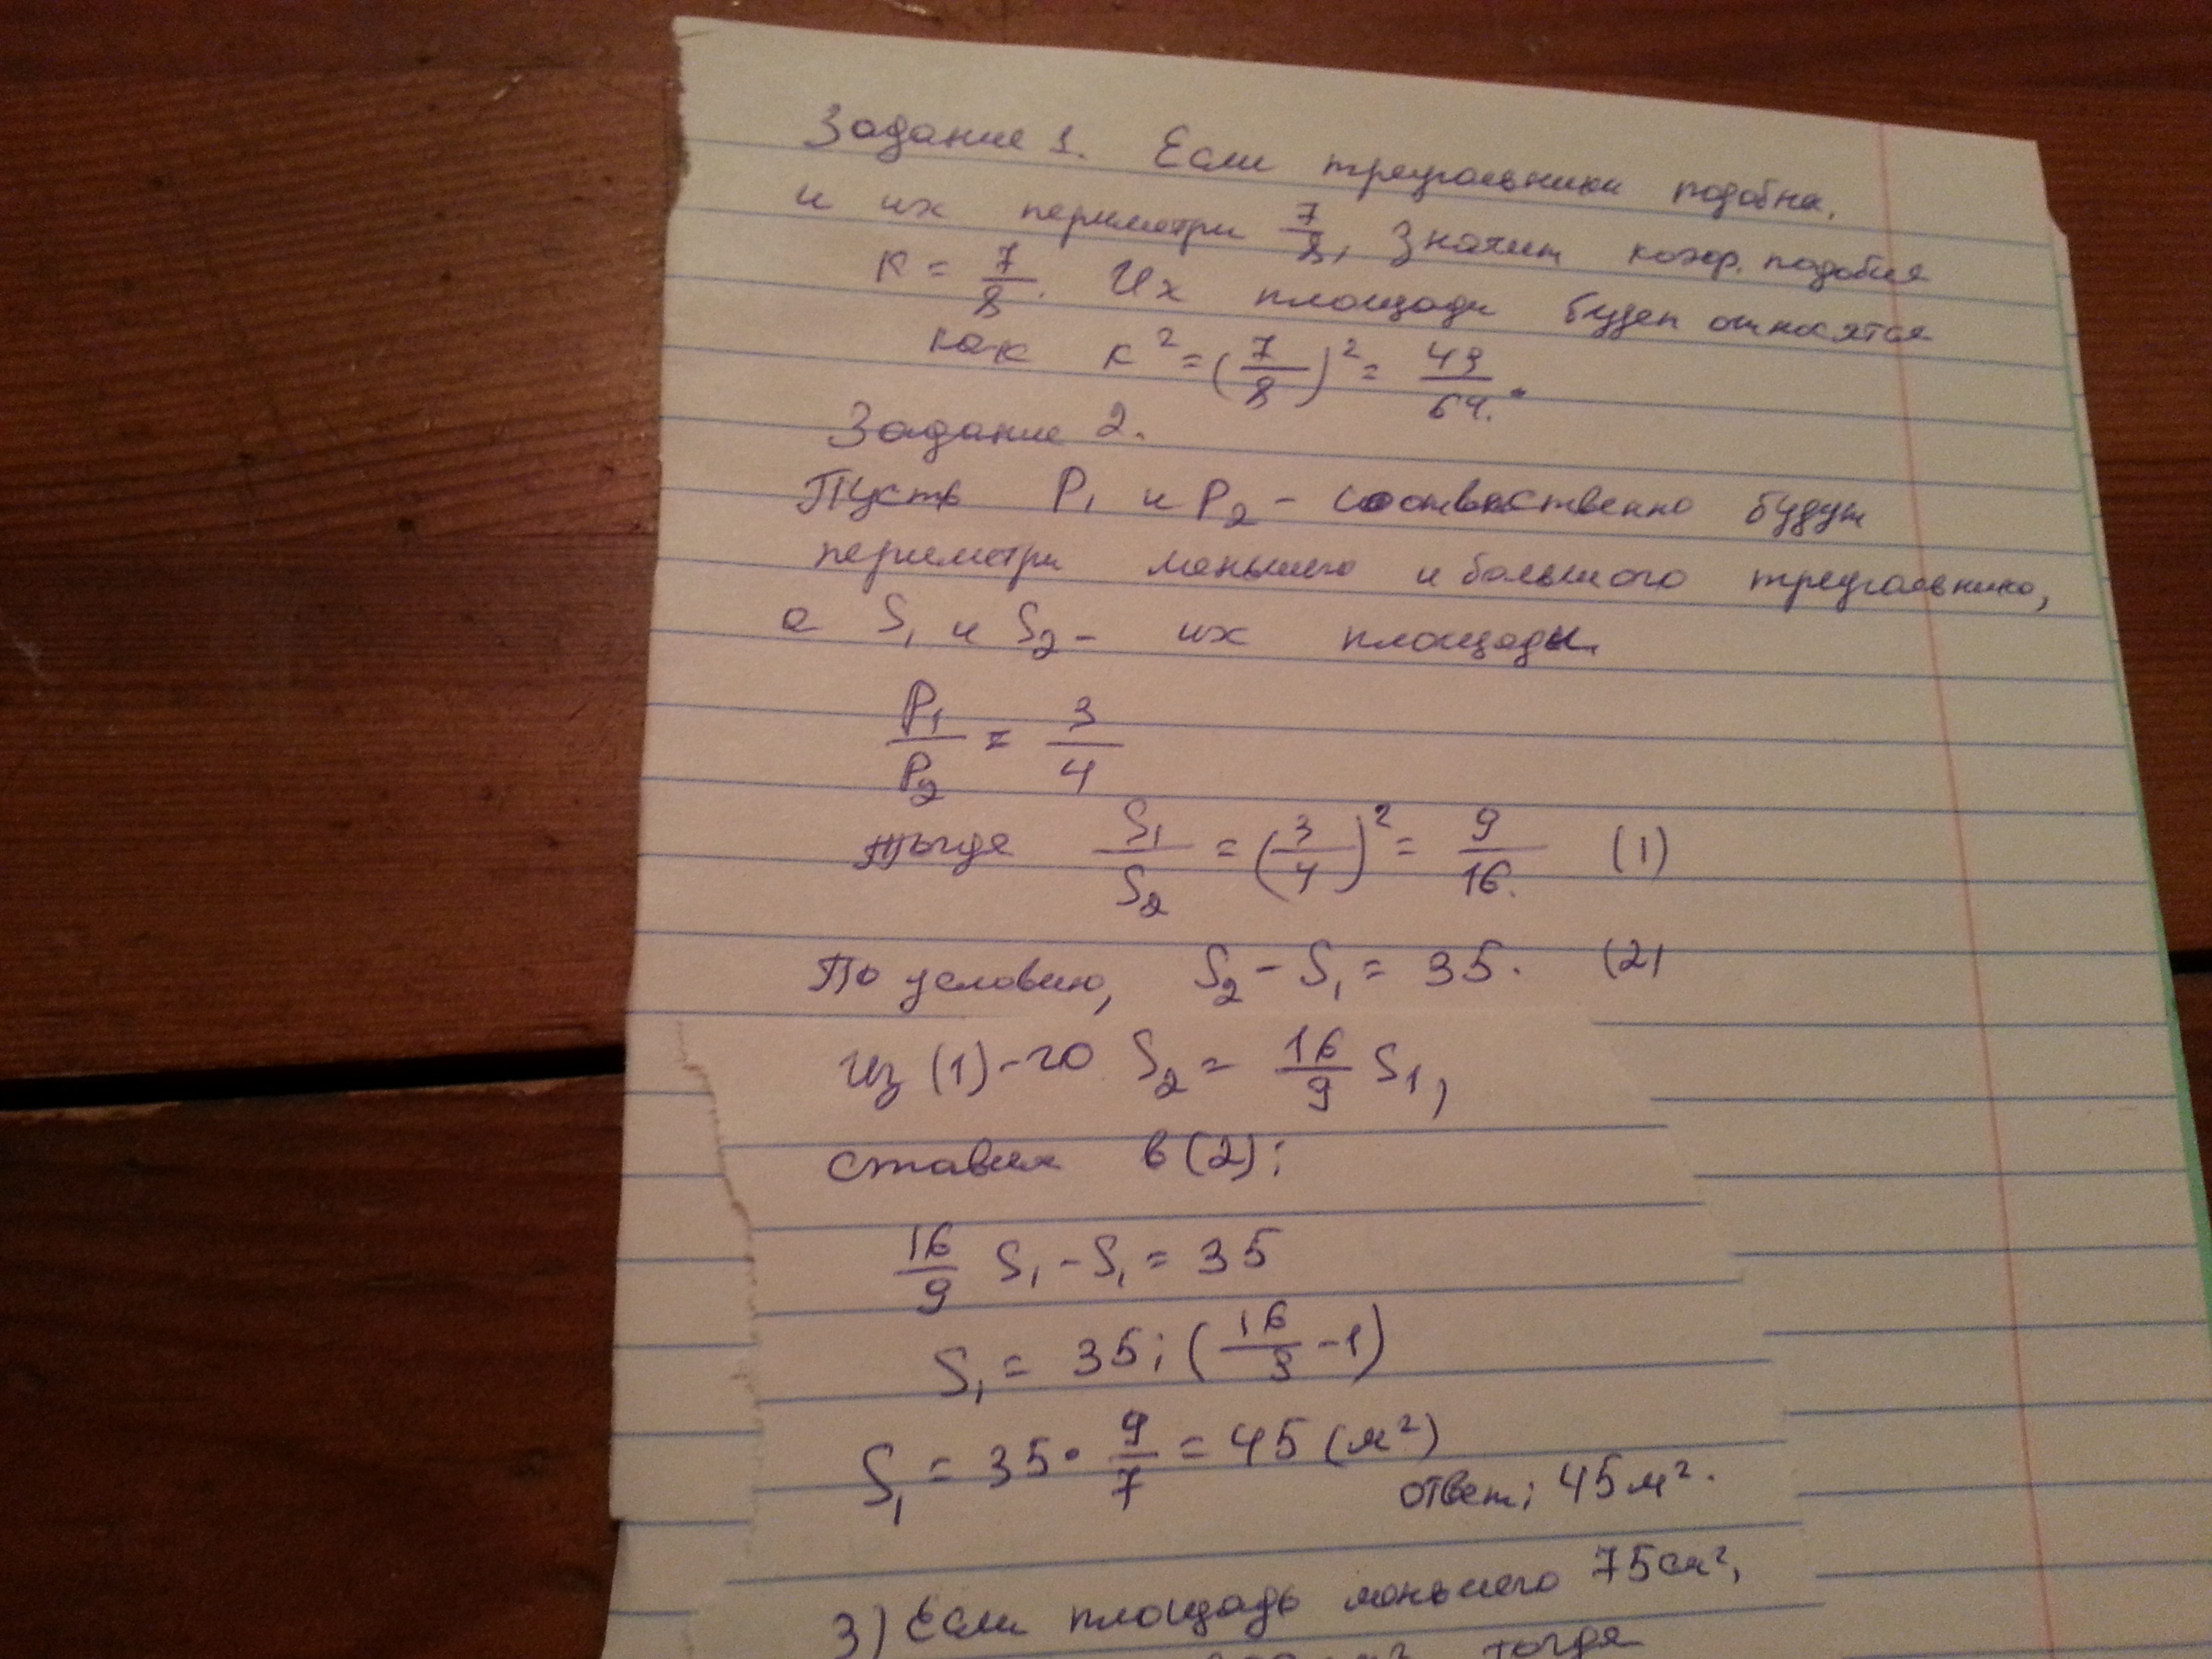 Задание 1. Если треугольники подобна,
и их периметри 7/8, значит коэф. подобия
к = 7/8. Их площади будеп относятся
как к² = (7/8)² = 49/64.
Задание 2.
Пусть P₁ и P₂ - соответственно будут
периметри меньшего и большого треугольника,
а S₁ и S₂ - их площади.
P₁/P₂ = 3/4
тогда S₁/S₂ = (3/4)² = 9/16. (1)
По условию, S₂ - S₁ = 35. (2)
Из (1)-го S₂ = 16/9 S₁,
ставим в (2):
16/9 S₁ - S₁ = 35
S₁ = 35 : (16/9 - 1)
S₁ = 35 · 9/7 = 45 (м²)
ответ: 45 м².
3) Если площадь меньшего 75 см²,
тогда